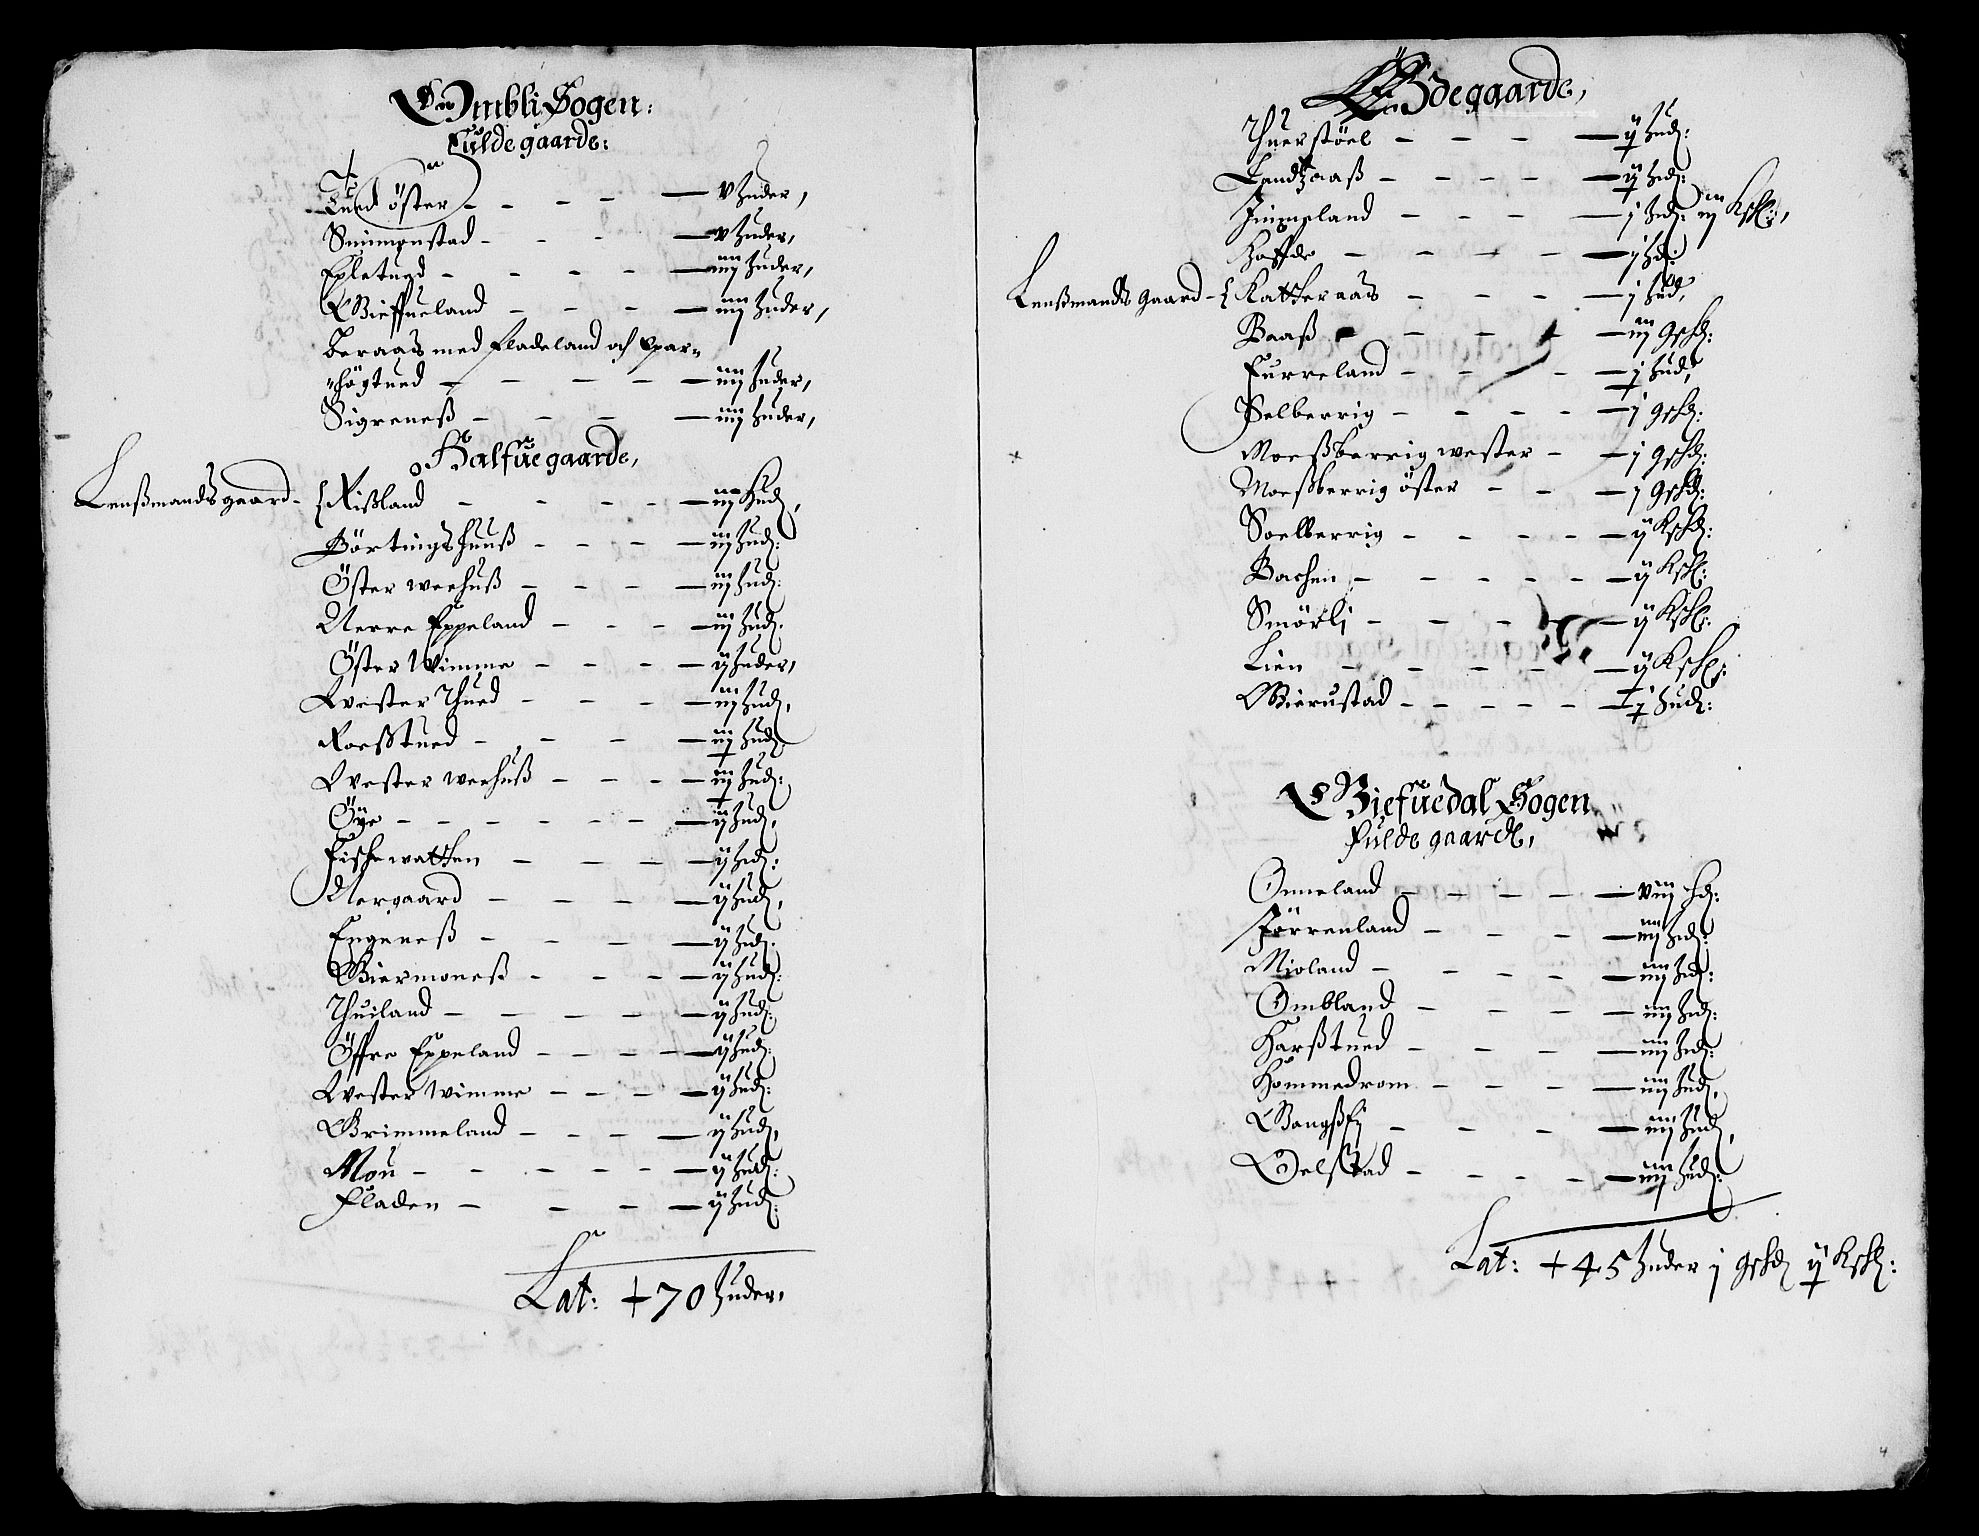 Ombli Sogen:
Fulde gaarde:
Lund öster - - - - v huder,
Simmonstad - - - v huder,
Epletued - - - - iiij huder,
Gieffueland - - - iiij huder,
Beraas med Fladeland och Spar=
=högtued - - - - iiij huder,
Sigreneß - - - iiij huder,
Halfue gaarde,
Lenßmands gaard - { Rißland - - - - iij hud,
Börtings huuß - - - - iij hud:
Öster werhuß - - - - iij hud:
Nerre Eppeland - - - iij hud:
Öster Wimme - - - - ij huder,
Wester Thued - - - - iij hud,
Roesstued - - - iij hud:
Wester werhuß - - - iij hud:
Öye - - - - - - ij hud,
Fischewatten - - - - ij hud:
Nergaard - - - - ij hud,
Engeneß - - - ij hud:
Biermoneß - - - ij hud:
Thuiland - - - - ij hud:
Öffre Eppeland - - - - ij hud:
Wester Wimme - - - ij hud:
Grimmeland - - - - ij hud,
Mou - - - - - ij hud:
Fladen - - - ij hud:
Lat: + 70 huder,
Ödegaarde,
Thuerstöel - - - ij hud:
Landzaaß - - - - ij hud:
Jimmeland - - - j hud: iij Kschl:,
Haffde - - - - j hd:
Lenßmands gaard - { Katteraas - - - j hud,
Baaß - - - - iij gschd:
Furreland - - - - j hud,
Selberrig - - - - j gschd:
Moeßberrig wester - j gschd:
Moeßberrig öster - - j gschd:
Soelberrig - - - - ij Kschd:
Bachen - - - - - ij Kschl:
Smörli - - - - ij Kschl:
Lien - - - - - ij Kschl:
Bierustad - - - - - j hud:
Giefuedal Sogen
Fulde gaarde,
Onneland - - - - viij hd:
Förrenland - - - iiij hd:
Mioland - - - - iiij hd:
Ombland - - - - iiij hd:
Harßtued - - - iiij hd:
Hommedrom - - - iiij hud,
Gangßei - - - iiij hud,
Oelstad - - - - iiij hud:
Lat: + 45 huder j gschd ij Kschl: